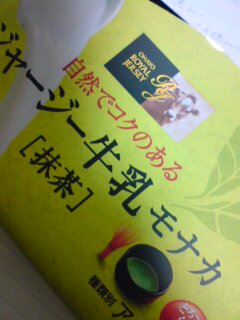 OHAYO
ROYAL
JERSEY
自然でコクのある
ジャージー牛乳モナカ
[抹茶]
種類別 ア